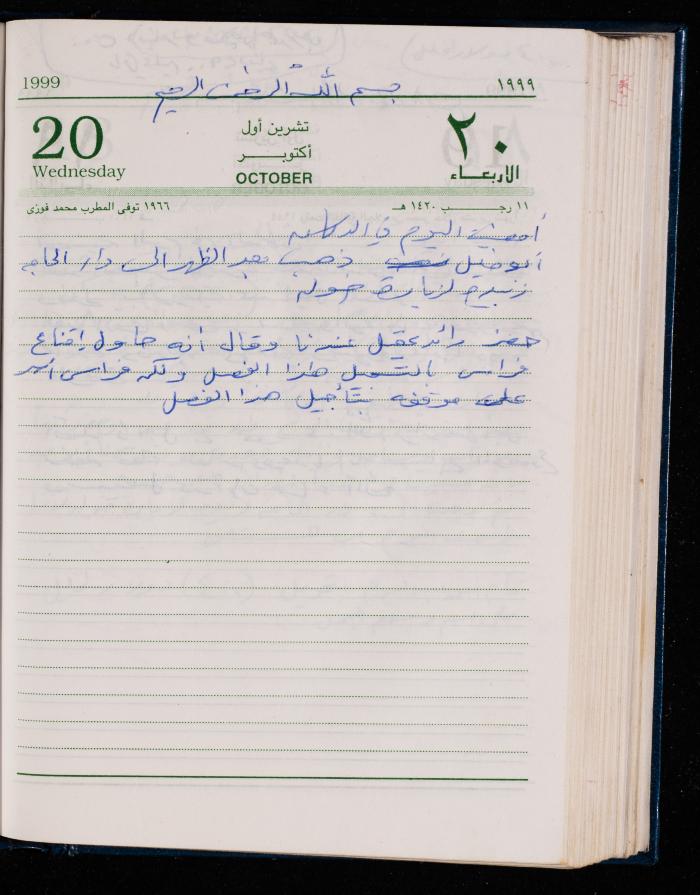 1999 ١٩٩٩
بسم الله الرحمن الرحيم
20 تشرين أول ٢٠
Wednesday أكتوبر الاربعاء
OCTOBER
١١ رجب ١٤٢٠ هـ ١٩٦٦ توفى المطرب محمد فوزى
أمضيت اليوم في الدكان
ابو خليل ذهب بعد الظهر الى دار الحاجه
لزيارة
حضر رائد عقل عندنا وقال أنه حاول إقناع
فراس بالتسجيل هذا الفصل ولكن فراس أصر
على موقفه بتأجيل هذا الفصل